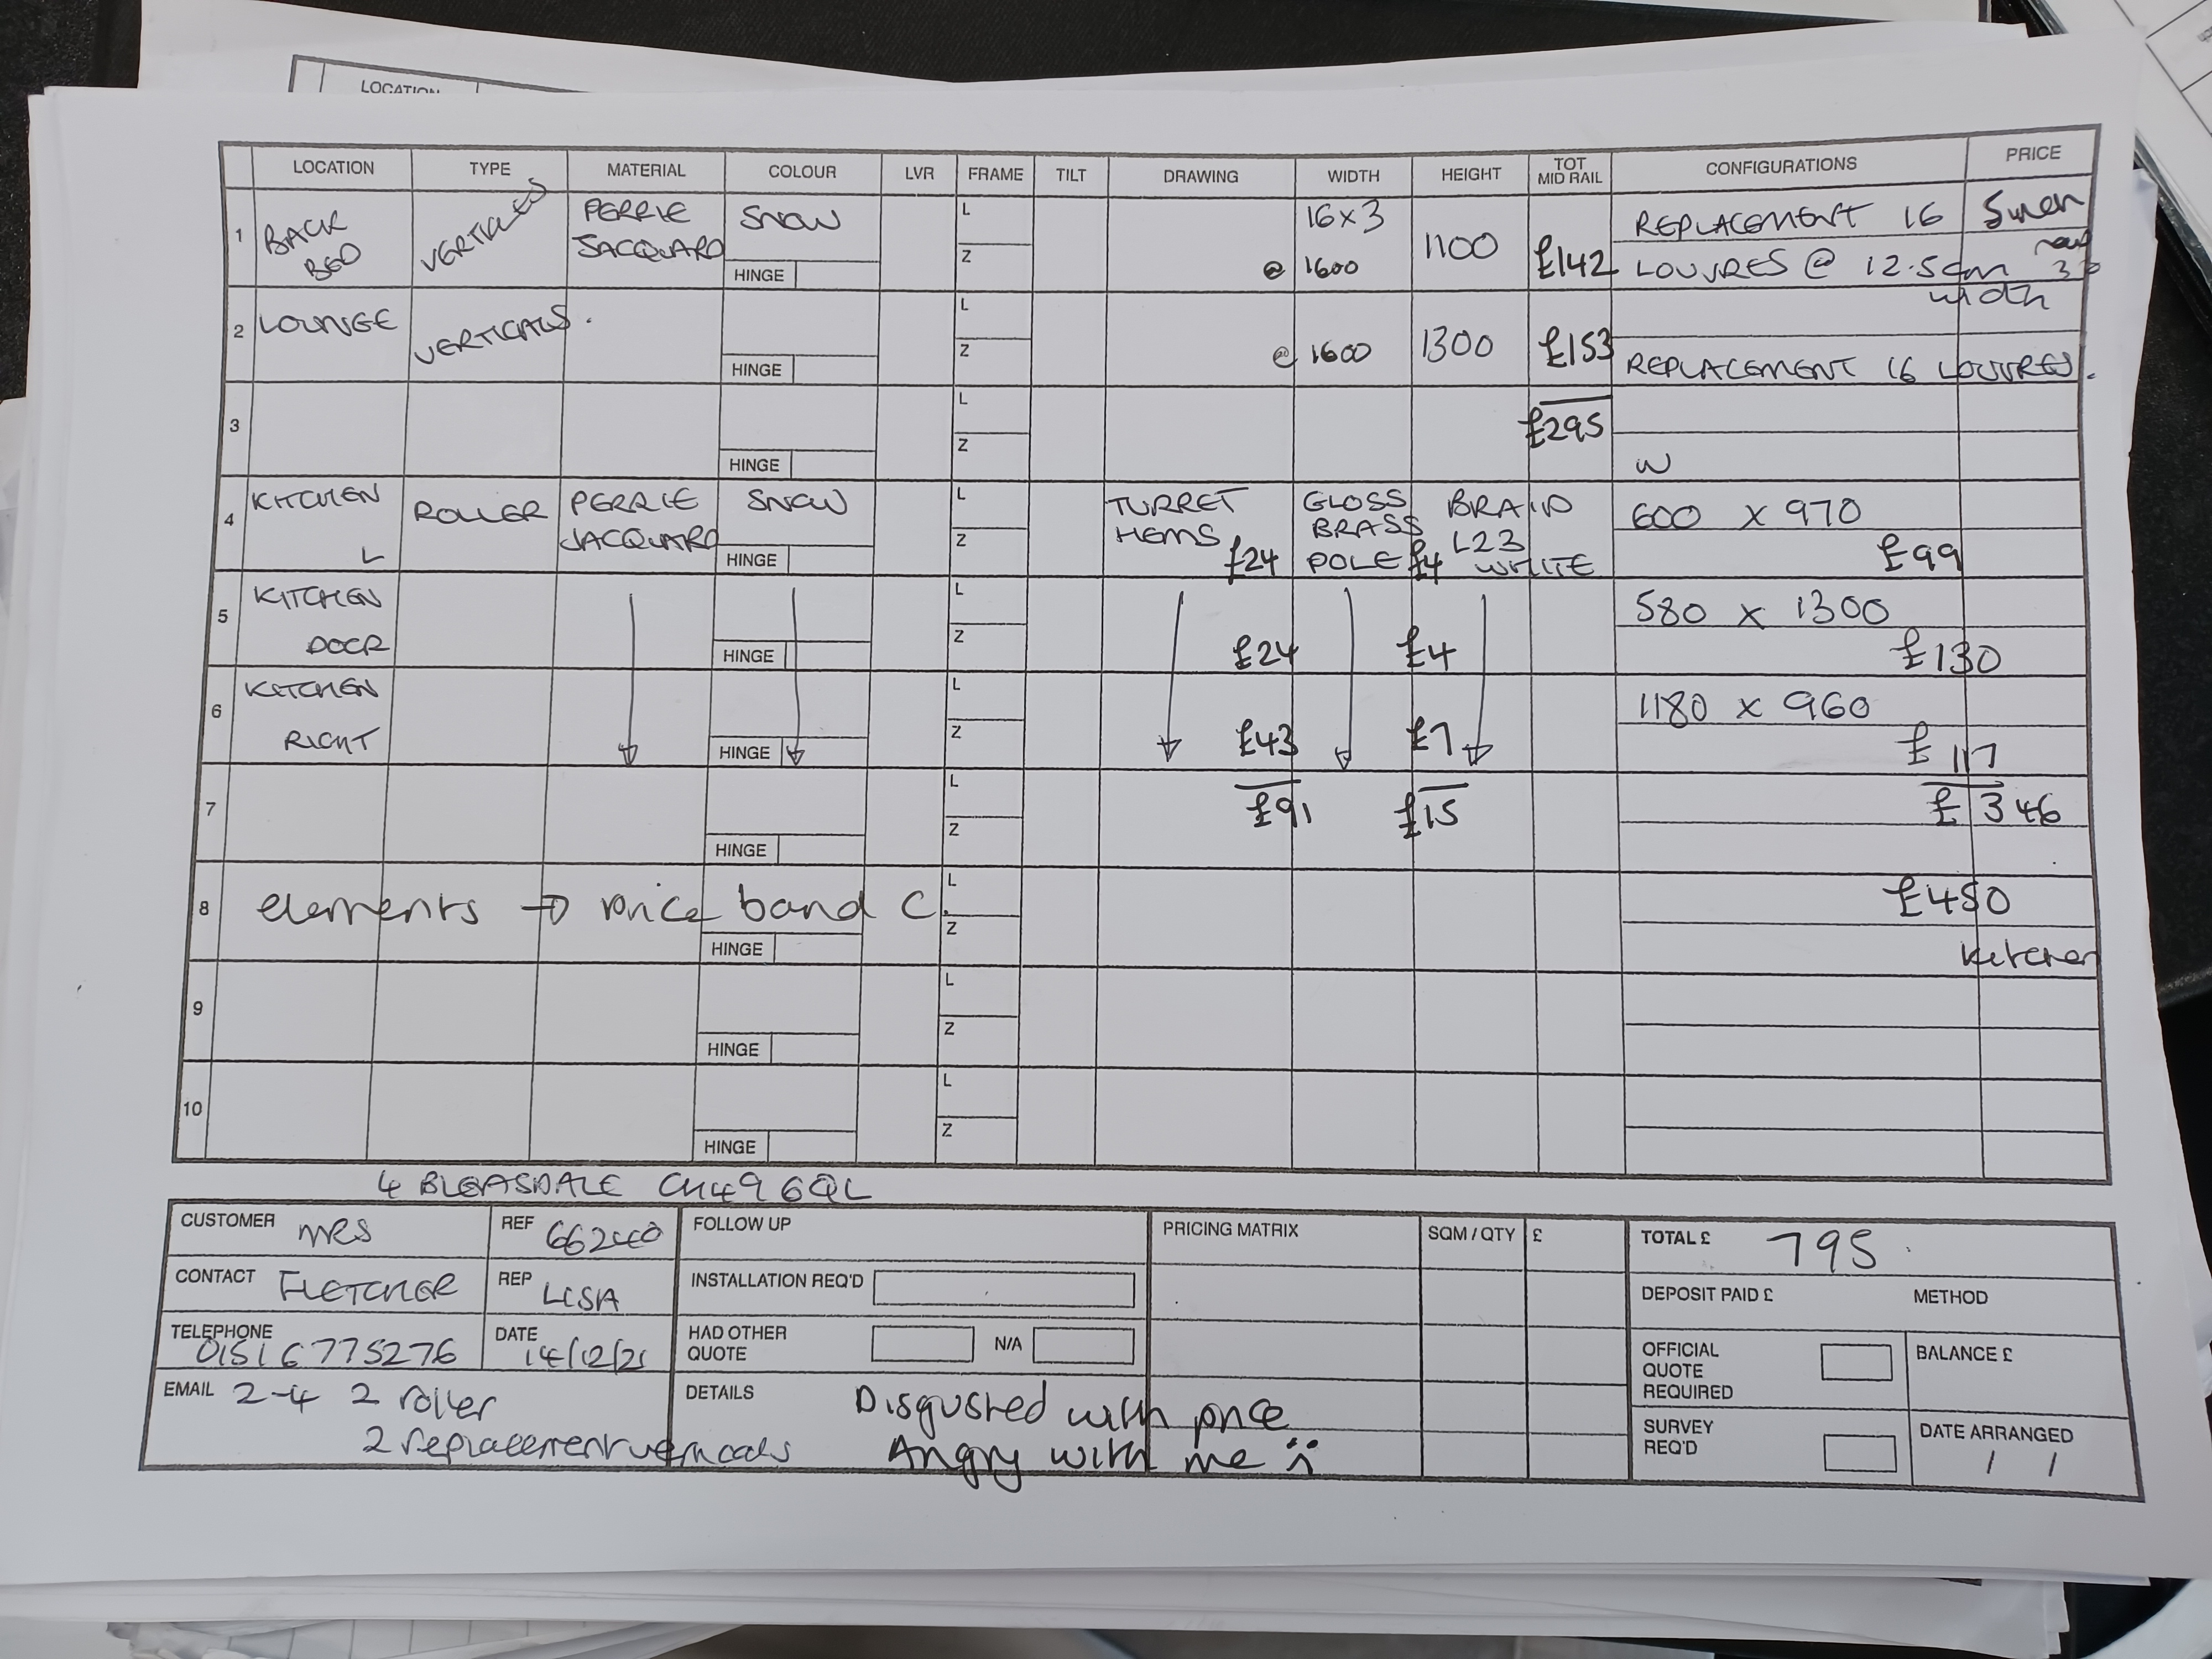 LOCATION
LOCATION TYPE MATERIAL COLOUR LVR FRAME TILT DRAWING WIDTH HEIGHT TOT MID RAIL CONFIGURATIONS PRICE
1 BACK BED VERTICALS PERRIE JACQUARD SNOW HINGE L Z 16x3 @ 1600 1100 £142 REPLACEMENT 16
LOUVRES @ 12.5cm
width
2 LOUNGE VERTICALS. HINGE L Z @ 1600 1300 £153 REPLACEMENT 16 LOUVRES.
3 HINGE L Z £295 W
4 KITCHEN L ROLLER PERRIE JACQUARD SNOW HINGE L Z TURRET HEMS £24 GLOSS BRASS POLE £4 BRAID L23 WHITE 600 x 970
£99
5 KITCHEN DOOR HINGE L Z £24 £4 580 x 1300
£130
6 KITCHEN RIGHT HINGE L Z £43 £7 1180 x 960
£117
7 HINGE L Z £91 £15 £346
8 elements → price band C. HINGE L Z £450
kitchen
9 HINGE L Z
10 HINGE L Z
4 BLEASDALE CH49 6QL
CUSTOMER MRS REF 662440 FOLLOW UP PRICING MATRIX SQM / QTY £ TOTAL £ 795
CONTACT FLETCHER REP LISA INSTALLATION REQ'D DEPOSIT PAID £ METHOD
TELEPHONE 0151 6775276 DATE 14/12/21 HAD OTHER QUOTE N/A OFFICIAL QUOTE REQUIRED BALANCE £
EMAIL 2-4 2 roller DETAILS Disgusted with price SURVEY REQ'D DATE ARRANGED
2 replacement verticals Angry with me / /